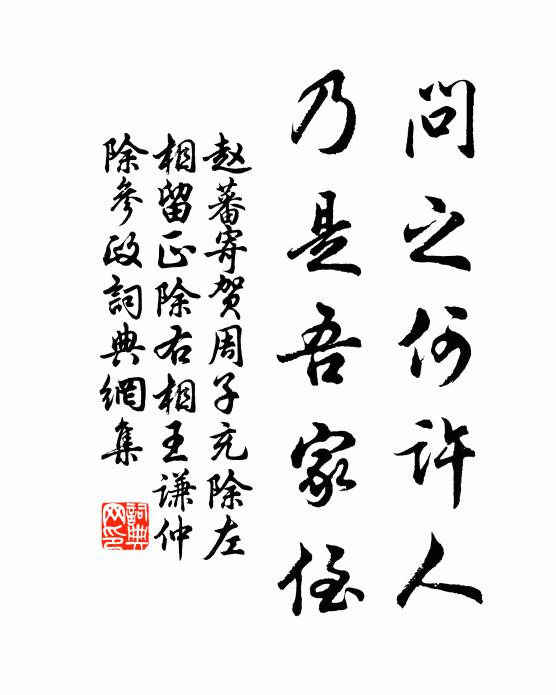 问之何许人
乃是吾家侄
赵蕃寄贺周子充除左
相留正除右相王谦仲
除参政词典网集
词典网印